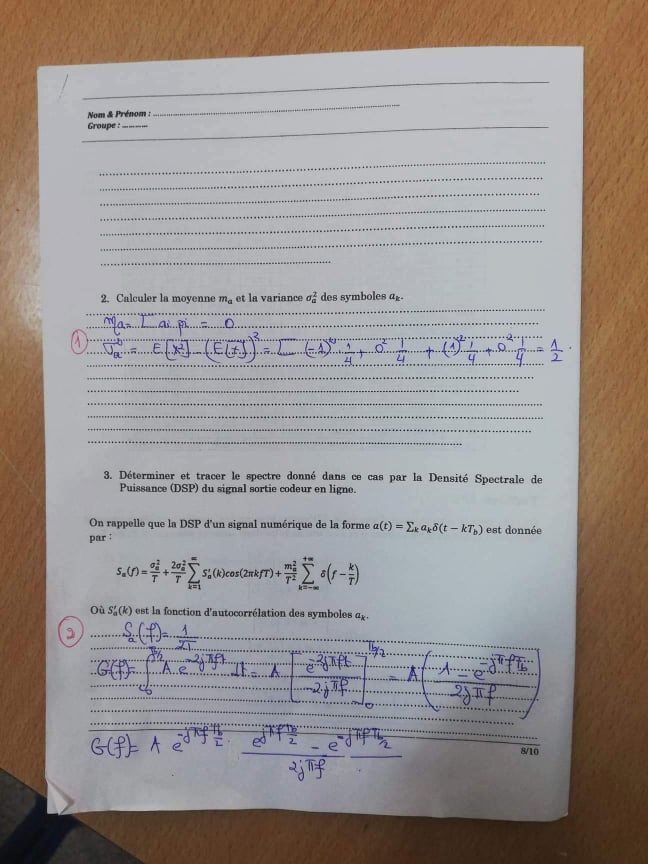 Nom & Prénom : ........................
Groupe : ............
2. Calculer la moyenne mₐ et la variance σₐ² des symboles aₖ.
mₐ = Σ aᵢ pᵢ = 0
① σₐ² = E[x²] - (E[x])² = Σ (-1)² · 1/4 + 0² 1/4 + (1)² 1/4 + 0² · 1/4 = 1/2 .
3. Déterminer et tracer le spectre donné dans ce cas par la Densité Spectrale de
Puissance (DSP) du signal sortie codeur en ligne.
On rappelle que la DSP d'un signal numérique de la forme a(t) = Σₖ aₖδ(t − kT_b) est donnée
par :
Sₐ(f) = σₐ²/T + 2σₐ²/T Σ_{k=1}^{∞} S'ₐ(k)cos(2πkfT) + mₐ²/T² Σ_{k=−∞}^{+∞} δ(f − k/T)
Où S'ₐ(k) est la fonction d'autocorrélation des symboles aₖ.
② Sₐ(f) = 1/2T
G(f) = ∫₀^{T_b/2} A e^{-2jπft} dt = A [e^{-2jπft} / -2jπf]₀^{T_b/2} = A (1 - e^{-jπfT_b} / 2jπf)
8/10
G(f) = A e^{-jπf T_b/2} · e^{jπf T_b/2} - e^{-jπf T_b/2} / 2jπf